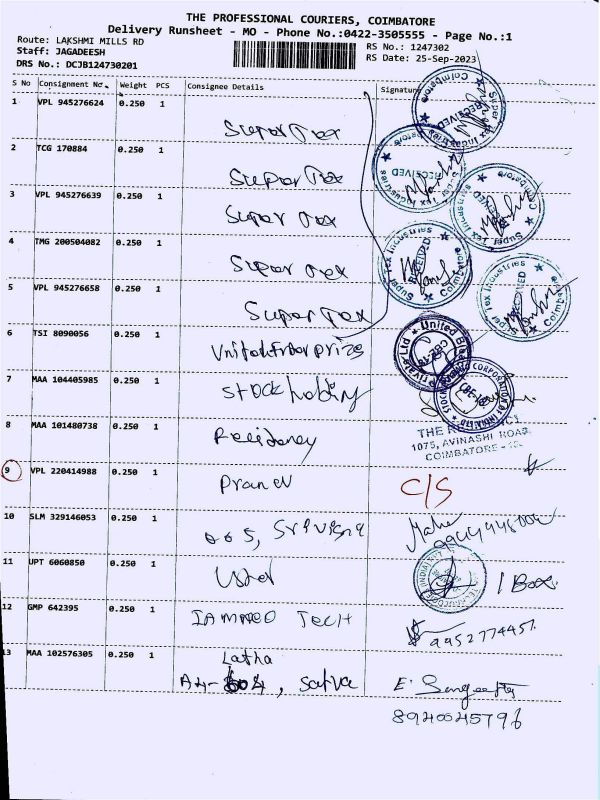 THE PROFESSIONAL COURIERS, COIMBATORE
Delivery Runsheet - MO - Phone No.:0422-3505555 - Page No.:1
Route: LAKSHMI MILLS RD
Staff: JAGADEESH
DRS No.: DCJB124730201
RS No.: 1247302
RS Date: 25-Sep-2023
S No Consignment No. Weight PCS Consignee Details Signature
1 VPL 945276624 0.250 1 Super Tex
2 TCG 170884 0.250 1 Super Tex
3 VPL 945276639 0.250 1 Super Tex
4 TMG 200504082 0.250 1 Super Tex
5 VPL 945276658 0.250 1 Super Tex
6 TSI 8090056 0.250 1
7 MAA 104405985 0.250 1 Stock holding
8 MAA 101480738 0.250 1 Residency
1075, AVINASHI ROAD,
COIMBATORE -
9 VPL 220414988 0.250 1 C/S
10 SLM 329146053 0.250 1
11 UPT 6060850 0.250 1 1 Box
12 GMP 642395 0.250 1 Tech
9952774457
13 MAA 102576305 0.250 1 Latha
E. Sangeetha
8940045796
Super Tex Industries ★ Coimbatore ★ RECEIVED
Super Tex Industries ★ Coimbatore ★ RECEIVED
Super Tex Industries ★ Coimbatore ★ RECEIVED
Super Tex Industries ★ Coimbatore ★ RECEIVED
Super Tex Industries ★ Coimbatore ★ RECEIVED